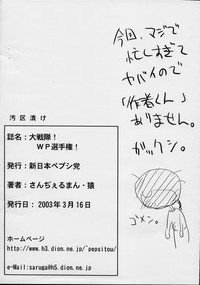 今回、マジで
忙しすぎて
ヤバイので
「作者くん」
ありません。
ガックシ。
ゴメン。
汚区漬け
誌名：大戦隊！
ＷＰ選手権！
発行：新日本ペプシ党
著者：さんぢぇるまん・猿
発行日：2003年３月16日
ホームページ
http://www.h3.dion.ne.jp/~pepsitou/
e-Mail:saruga@h5.dion.ne.jp